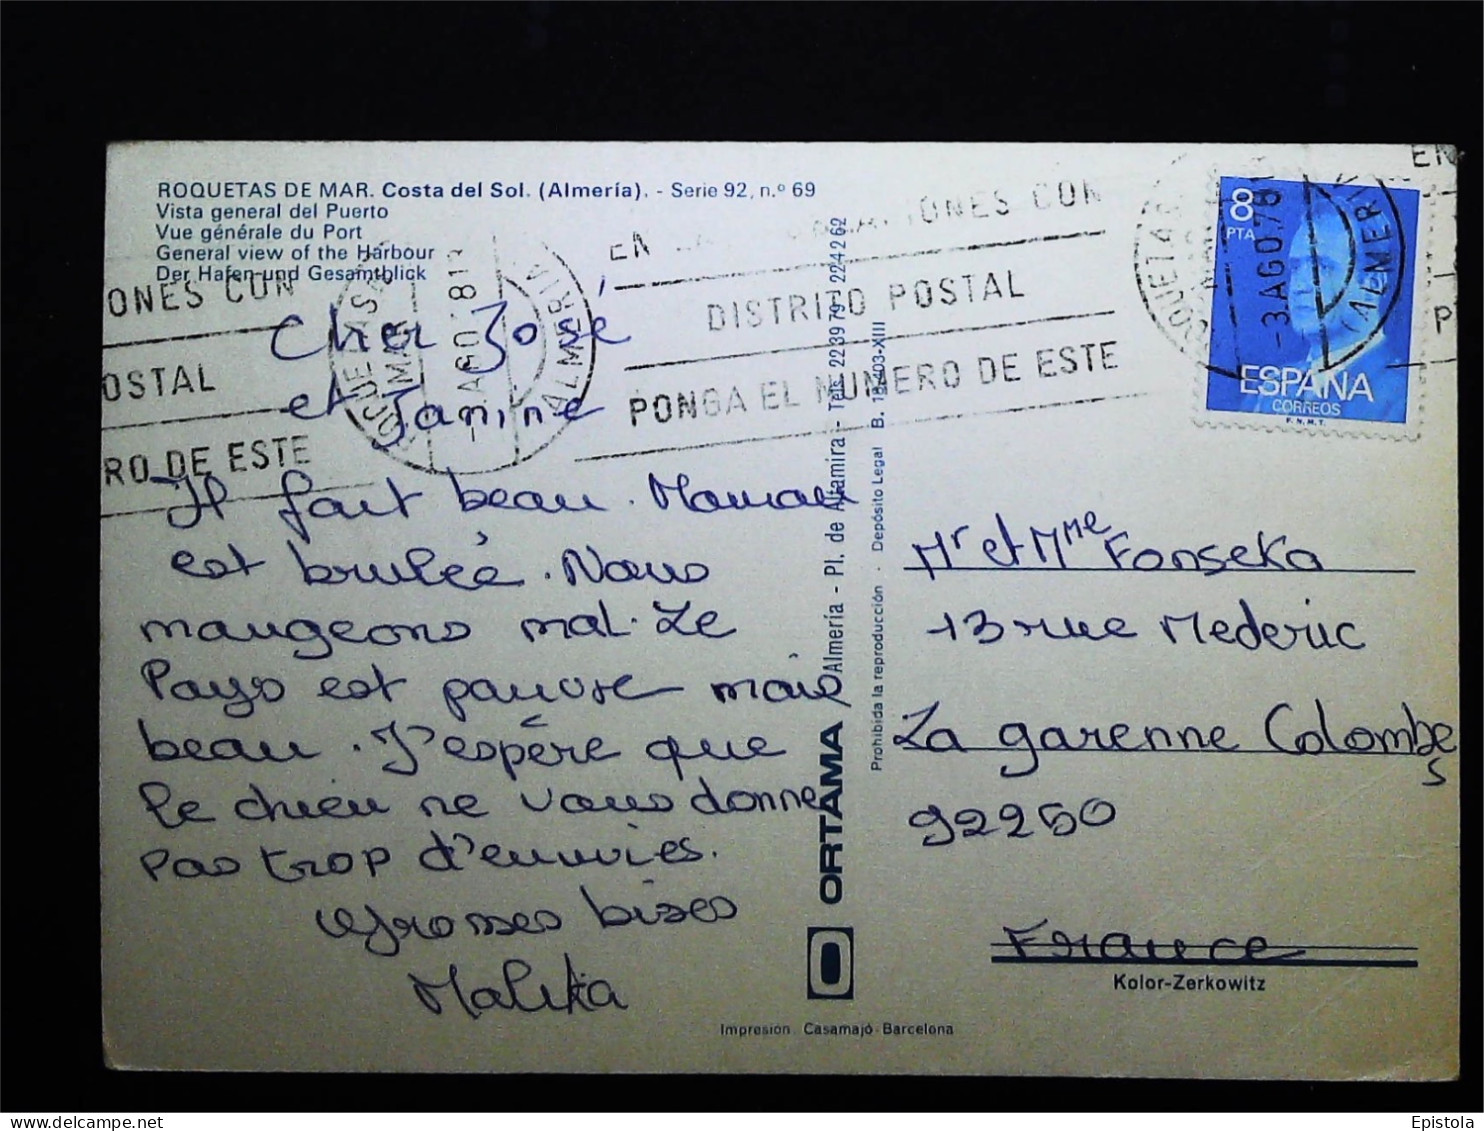 ROQUETAS DE MAR. Costa del Sol. (Almería). - Serie 92, n.º 69
Vista general del Puerto
Vue générale du Port
General view of the Harbour
Der Hafen und Gesamtblick
ONES CON
OSTAL
RO DE ESTE
ROQUETAS DE MAR
AGO
ALMERIA
EN CON
DISTRITO POSTAL
PONGA EL NUMERO DE ESTE
-3.AGO.78
(ALMERIA
EN
P
8
PTA
ESPAÑA
CORREOS
F.N.M.T.
Cher José
et Janine
Il fait beau. Maman
est brulée. Nous
mangeons mal. Le
Pays est pauvre mais
beau. J'espère que
le chien ne vous donne
pas trop d'ennuies.
Grosses bises
Malika
ORTAMA Almería - Pl. de Altamira - Tels. 223979 - 224262
Prohibida la reproducción - Depósito Legal B. 18.403-XIII
Mr et Mme Fonseka
13 rue Mederic
La garenne Colombe
s
92250
France
Kolor-Zerkowitz
Impresion Casamajó - Barcelona
delcampe.net
Epistola